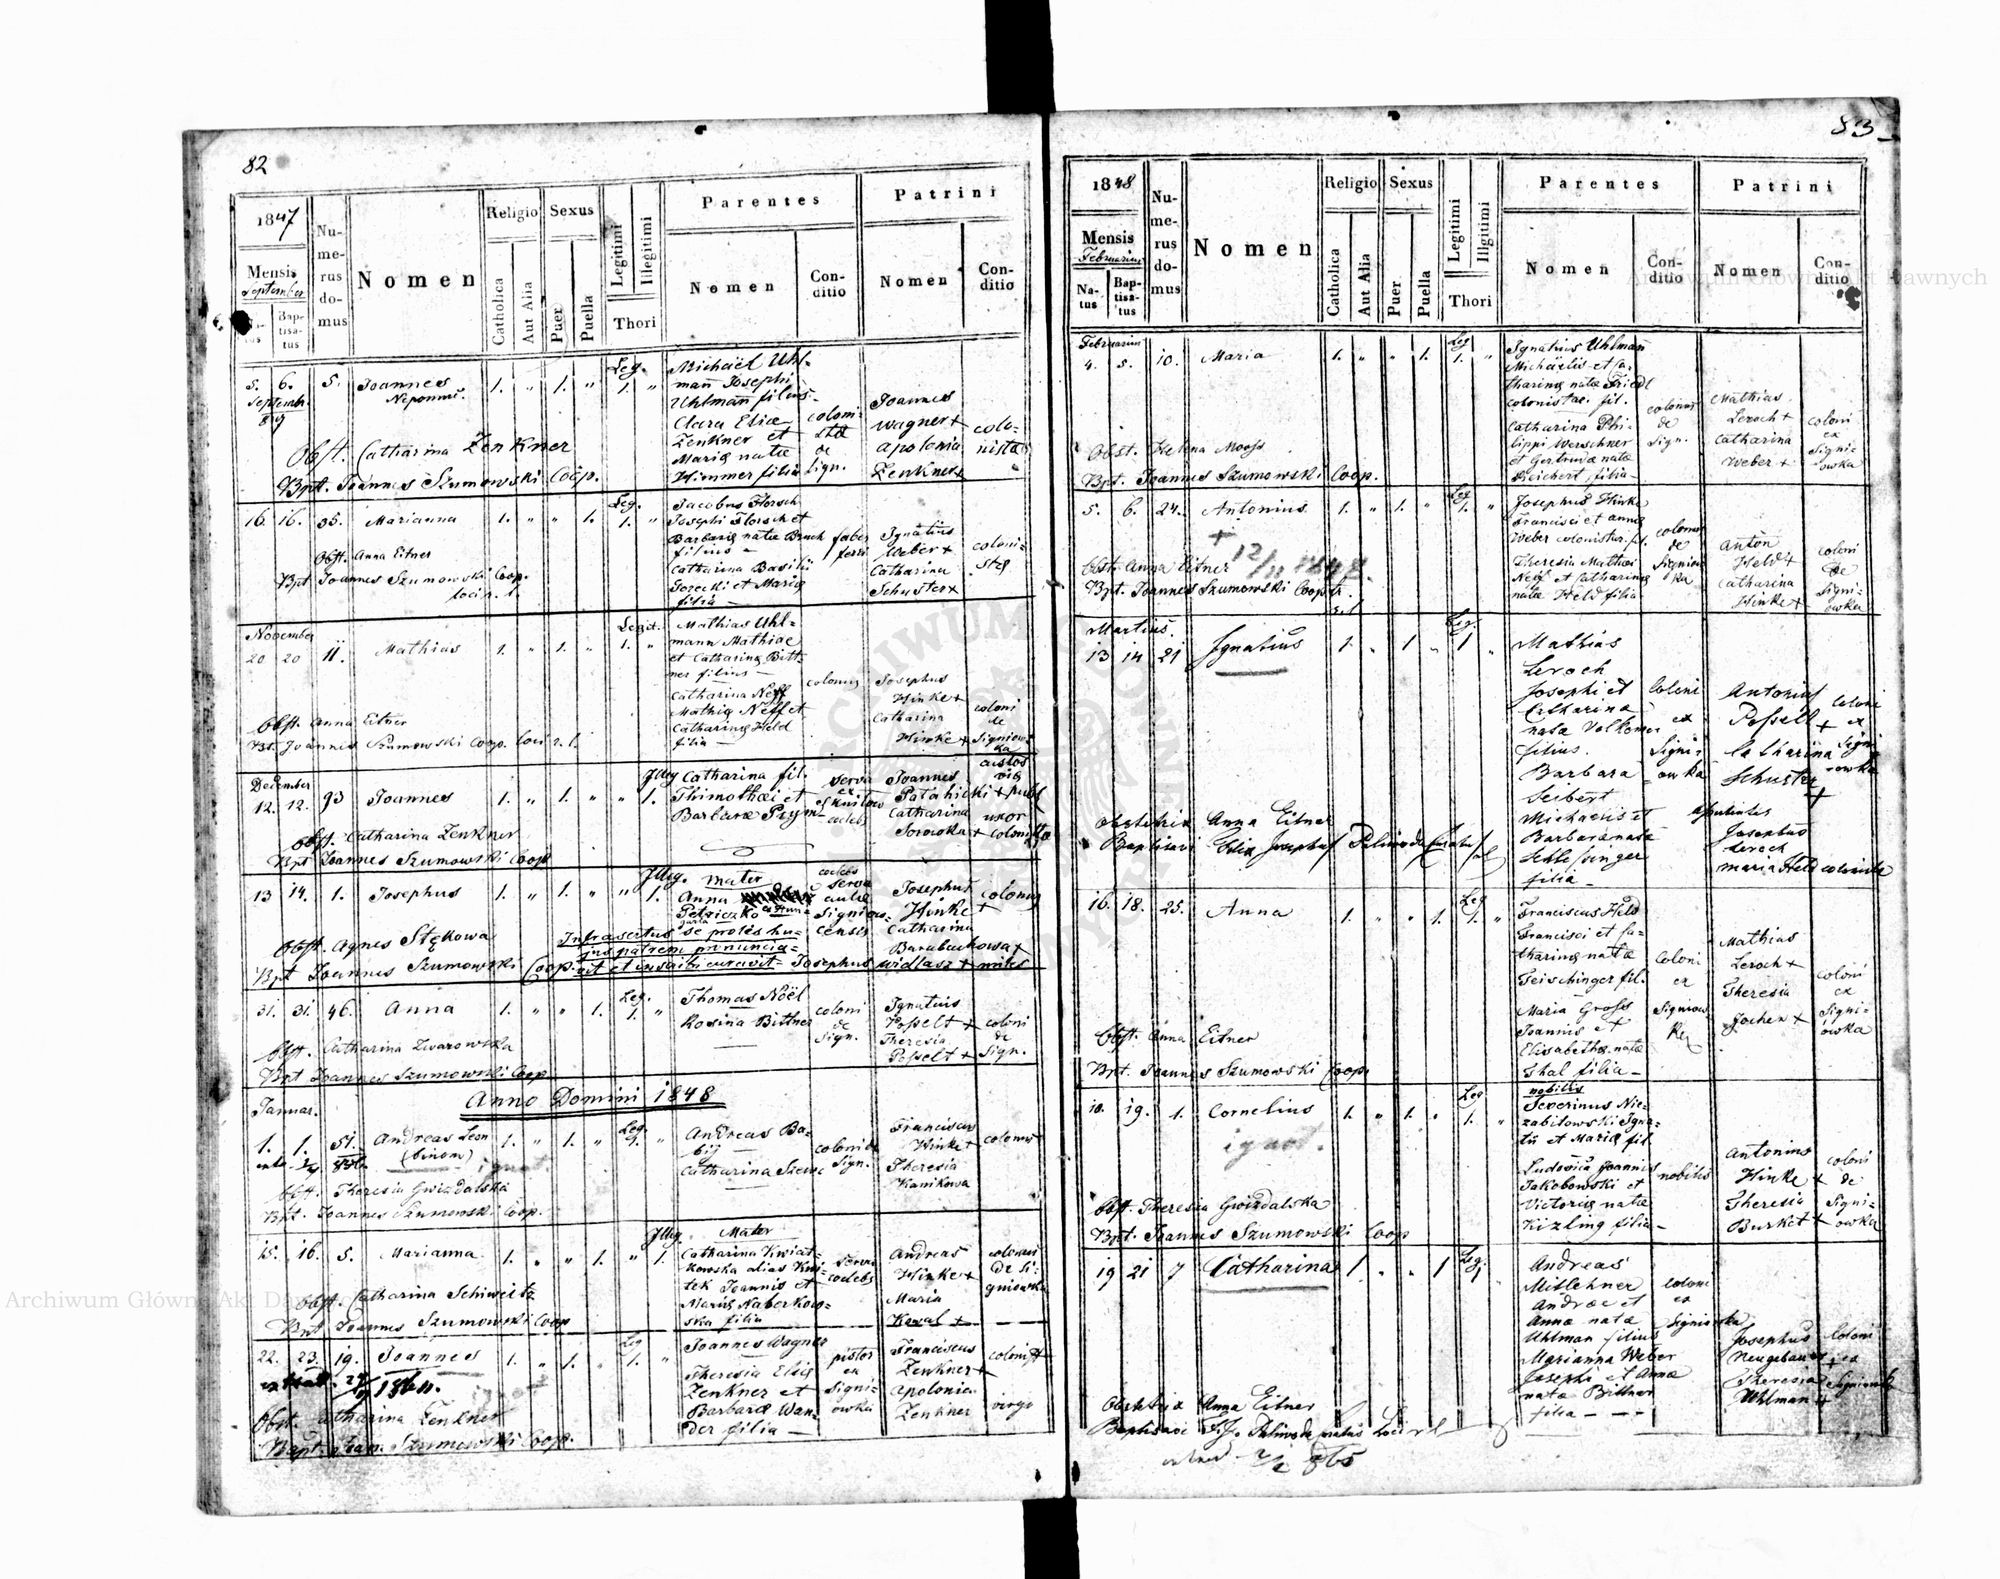 82
1847
Mensis
September
Na-
tus
Bap-
tisa-
tus
Nu-
me-
rus
do-
mus
Nomen
Religio
Catholica
Aut Alia
Sexus
Puer
Puella
Legitimi
Illegitimi
Thori
Parentes
Nomen
Con-
ditio
Patrini
Nomen
Con-
ditio
5. 6. 5. Joannes 1. „ 1. „ Leg. 1. „
Michaël Uhl-
mañ Josephi
Uhlmañ filius
Clara Eliæ
Zenkner et
Mariæ natæ
Himmer filia
coloni
de
Sign.
Joannes
Wagner +
Apolonia
Zenkner +
colo-
nistæ
Obst. Catharina Zenkner
Bpt. Joannes Szumowski Coop.
16. 16. 35. Marianna 1. „ „ 1. Leg. 1. „
Jacobus Florsch
Josephi Florsch et
Barbaræ natæ Bruch
filius –
Catharina Basilii
et Mariæ
filia –
faber
Ignatius
Weber +
Catharina
Schuster +
coloni-
stæ
Obst. Anna Eitner
Bpt Joannes Szumowski Coop.
November
20 20 11. Mathias 1. „ 1. „ Legit. 1. „
Mathias Uhl-
mann Mathiae
et Catharinæ Bitt-
ner filius –
Catharina Neff
Mathiæ Neff et
Catharinæ Held
filia –
colonus
Josephus
Hinke +
Catharina
Hinke +
coloni
de
Signiow-
ka
Obst. Anna Eitner
Bpt. Joannes Szumowski Coop. loci r. l.
December
12. 12. 93 Joannes 1. „ 1. „ „ Illeg. 1.
Catharina fil.
Thimothæi et
Barbaræ
serva
Joannes
Catharina
uxor
Obst. Catharina Zenkner
Bpt Joannes Szumowski Coop
13 14. 1. Josephus 1. „ 1. „ „ Illeg. 1.
Mater
Anna
Petriczko
coelebs
serva
aulæ
Signiow-
censis
Josephus
Hinke +
Catharina
Barabachowa +
colonus
Obst. Agnes Stękowa
Infrascriptus se prolis hu-
jus patrem pronuncia-
vit et inscribi curavit – Josephus Widlasz + miles
Bpt Joannes Szumowski Coop.
31. 31. 46. Anna 1. „ „ 1. Leg. 1. „
Thomas Nöel
Rosina Bittner
coloni
de
Sign.
Ignatius
Posselt +
Theresia
Posselt +
coloni
de
Sign.
Obst. Catharina Zwarowska
Bpt Joannes Szumowski Coop.
Anno Domini 1848
Januar.
1. 1. 51. Andreas Leon 1. „ 1. „ Leg. 1. „
(binom)
Andreas Ba-
bij
Catharina
coloni de
Sign.
Franciscus
Hinke +
Theresia
Kanikowa
colonus
Obst. Theresia Gwizdalska
Bpt. Joannes Szumowski Coop.
15. 16. 5. Marianna 1. „ „ 1. „ Illeg. 1.
Mater
Catharina Kwiat-
kowska alias Kwi-
tek Joannis et
Mariæ Naberkow-
ska filia
serva
coelebs
Andreas
Hinke +
Maria
Kowal +
colonus
de Si-
gniowka
Obst. Catharina Schiweitz
Bpt Joannes Szumowski Coop
22. 23. 19. Joannes 1. „ 1. „ Leg 1. „
Joannes Wagner
Theresia Eliæ
Zenkner et
Barbaræ Wan-
der filia –
pistor
ex
Signi-
owka
Franciscus
Zenkner +
Apolonia
Zenkner
colonist
virgo
Obst. Catharina Zenkner
Bapt. Joan. Szumowski Coop.
83
1848
Mensis
Februarius
Na-
tus
Bap-
tisa-
tus
Nu-
me-
rus
do-
mus
Nomen
Religio
Catholica
Aut Alia
Sexus
Puer
Puella
Legitimi
Illgitimi
Thori
Parentes
Nomen
Con-
ditio
Patrini
Nomen
Con-
ditio
Februarius
4. 5. 10. Maria 1. „ „ 1. Leg 1. „
Ignatius Uhlmañ
Michaëlis et Ca-
tharinæ natæ Friedl
colonistae fil.
Catharina Phi-
lippi Werschner
et Gertrudæ natæ
Reichert filia –
colonus
de
Sign.
Mathias
Leroch +
Catharina
Weber +
coloni
ex
Signi-
owka
Obst. Helena Mooss
Bpt. Joannes Szumowski Coop.
5. 6. 24. Antonius 1. „ 1. „ Leg 1. „
Josephus Hinke
Francisci et Annæ
Weber colonistar. fil.
Theresia Mathiæ
Neff et Catharinæ
natæ Held filia
colonus
de
Signiow
ka
Anton
Held +
Catharina
Hinke +
coloni
de
Signi-
owka
Obst. Anna Eitner
Bpt. Joannes Szumowski Coop.
Martius.
13 14 21 Ignatius 1. „ 1 „ Leg. 1 „
Mathias
Leroch
Josephi et
Catharina
nata Volkomer
filius.
Barbara
Seibert
Michaelis et
Barbara nata
Schlessinger
filia –
Coloni
ex
Signi-
owka
Antonius
Posselt +
Catharina
Schuster
+
Coloni
ex
Signi-
owka
Josephus
Leroch
Maria Held colonistæ
Obstetrix Anna Eitner
Baptisavi Felix Josephus Curatus
16. 18. 25. Anna 1. „ „ 1. Leg 1. „
Franciscus Held
Francisci et Ca-
tharinæ natæ
Geischinger fil.
Maria Gross
Joannis et
Elisabethæ natæ
Thal filia –
Coloni
ex
Signiow
ka
Mathias
Leroch +
Theresia
Jocher +
coloni
ex
Signi-
owka
Obst. Anna Eitner
Bpt. Joannes Szumowski Coop.
10. 19. 1. Cornelius 1. „ 1. „ Leg 1. „
nobilis
Severinus Nie-
zabitowski Igna-
tii et Mariæ fil.
Ludovica Joannis
Jakobowski et
Victoriæ natæ
Kizling filia –
nobiles
Antonius
Hinke +
Theresia
Burket +
coloni
de
Signi-
owka
Obst. Theresia Gwizdalska
Bpt. Joannes Szumowski Coop
19 21 7 Catharina 1 „ „ 1 Leg. 1
Andreas
Mitlehner
Andræ et
Annæ natæ
Uhlman filius
Marianna Weber
Josephi et Annæ
natæ Bittner
filia – – –
coloni
ex
Signiowka
Josephus
Neugebauer +
Theresia
Uhlman +
Coloni
ex
Signiowka
Obstetrix Anna Eitner
Archiwum Główne Akt Dawnych
Archiwum Główne Akt Dawnych